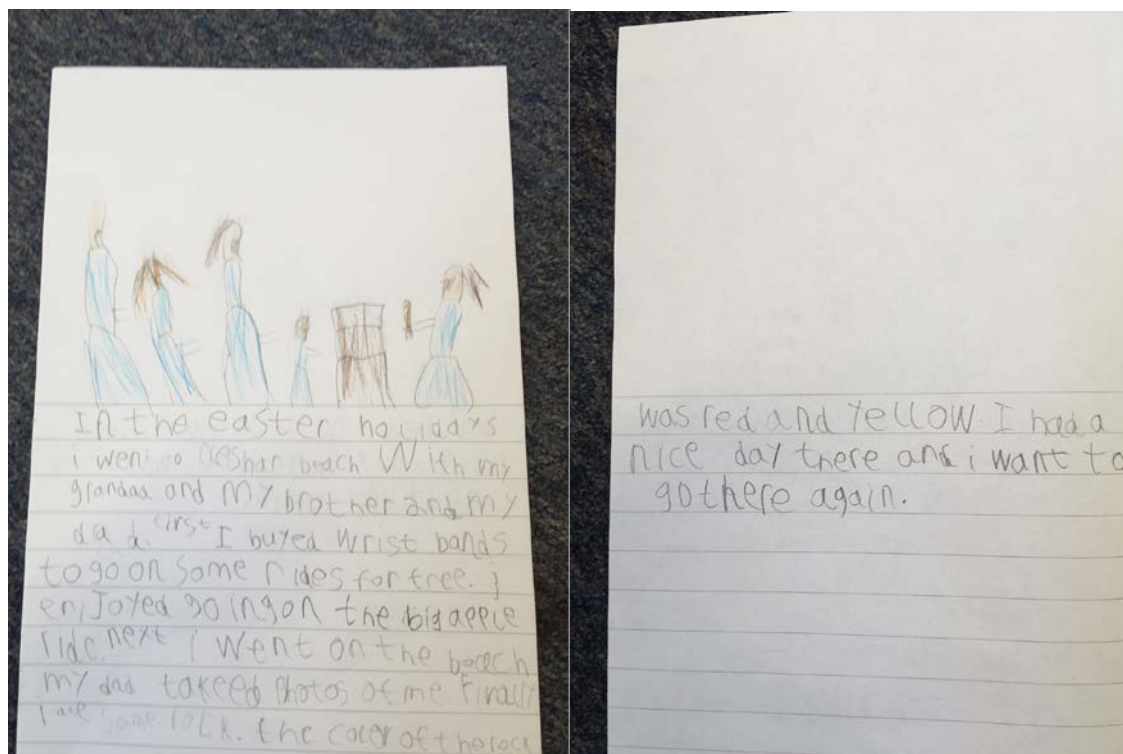 In the easter holidays
i went to beach With my
grandad and My brother and my
dad. First I buyed wrist bands
to go on some rides for free. I
enjoyed going on the big apple
ride. next i went on the beech
my dad takeed Photos of me Finally
I ate some rock. the coler of the rock
was red and Yellow. I had a
nice day there and i want to
go there again.